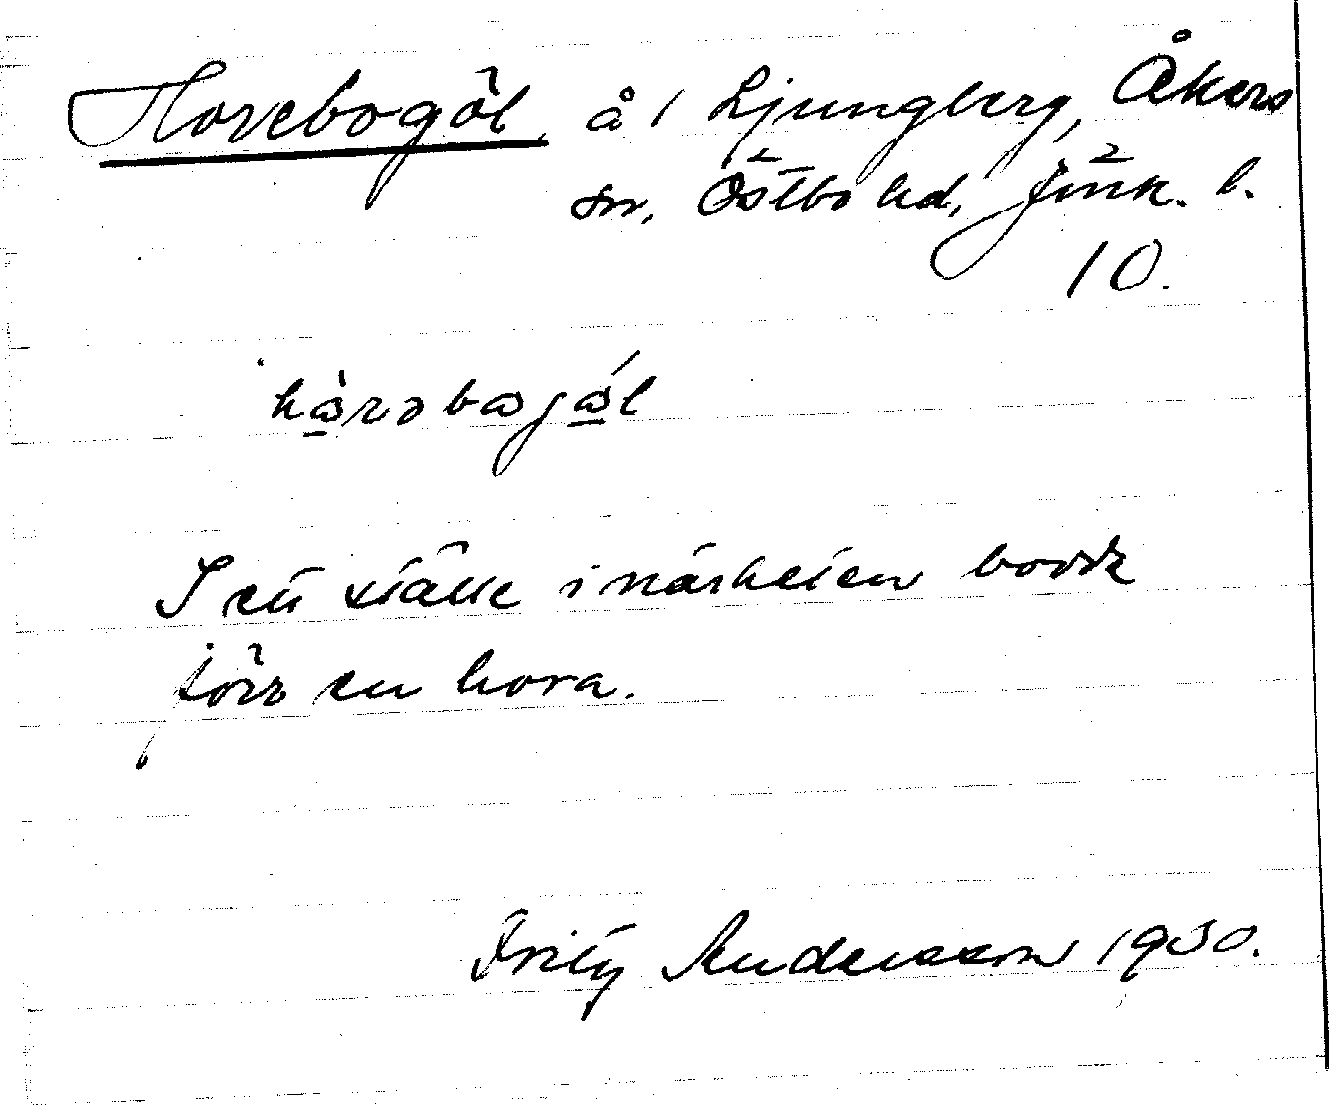 Horebogöl å 1 Ljungberg, Åkers
sn, Östbo hd, Jönk. l.
10.
I ett ställe i närheten bodde
förr en hora.
Fritz Andersson 1930.